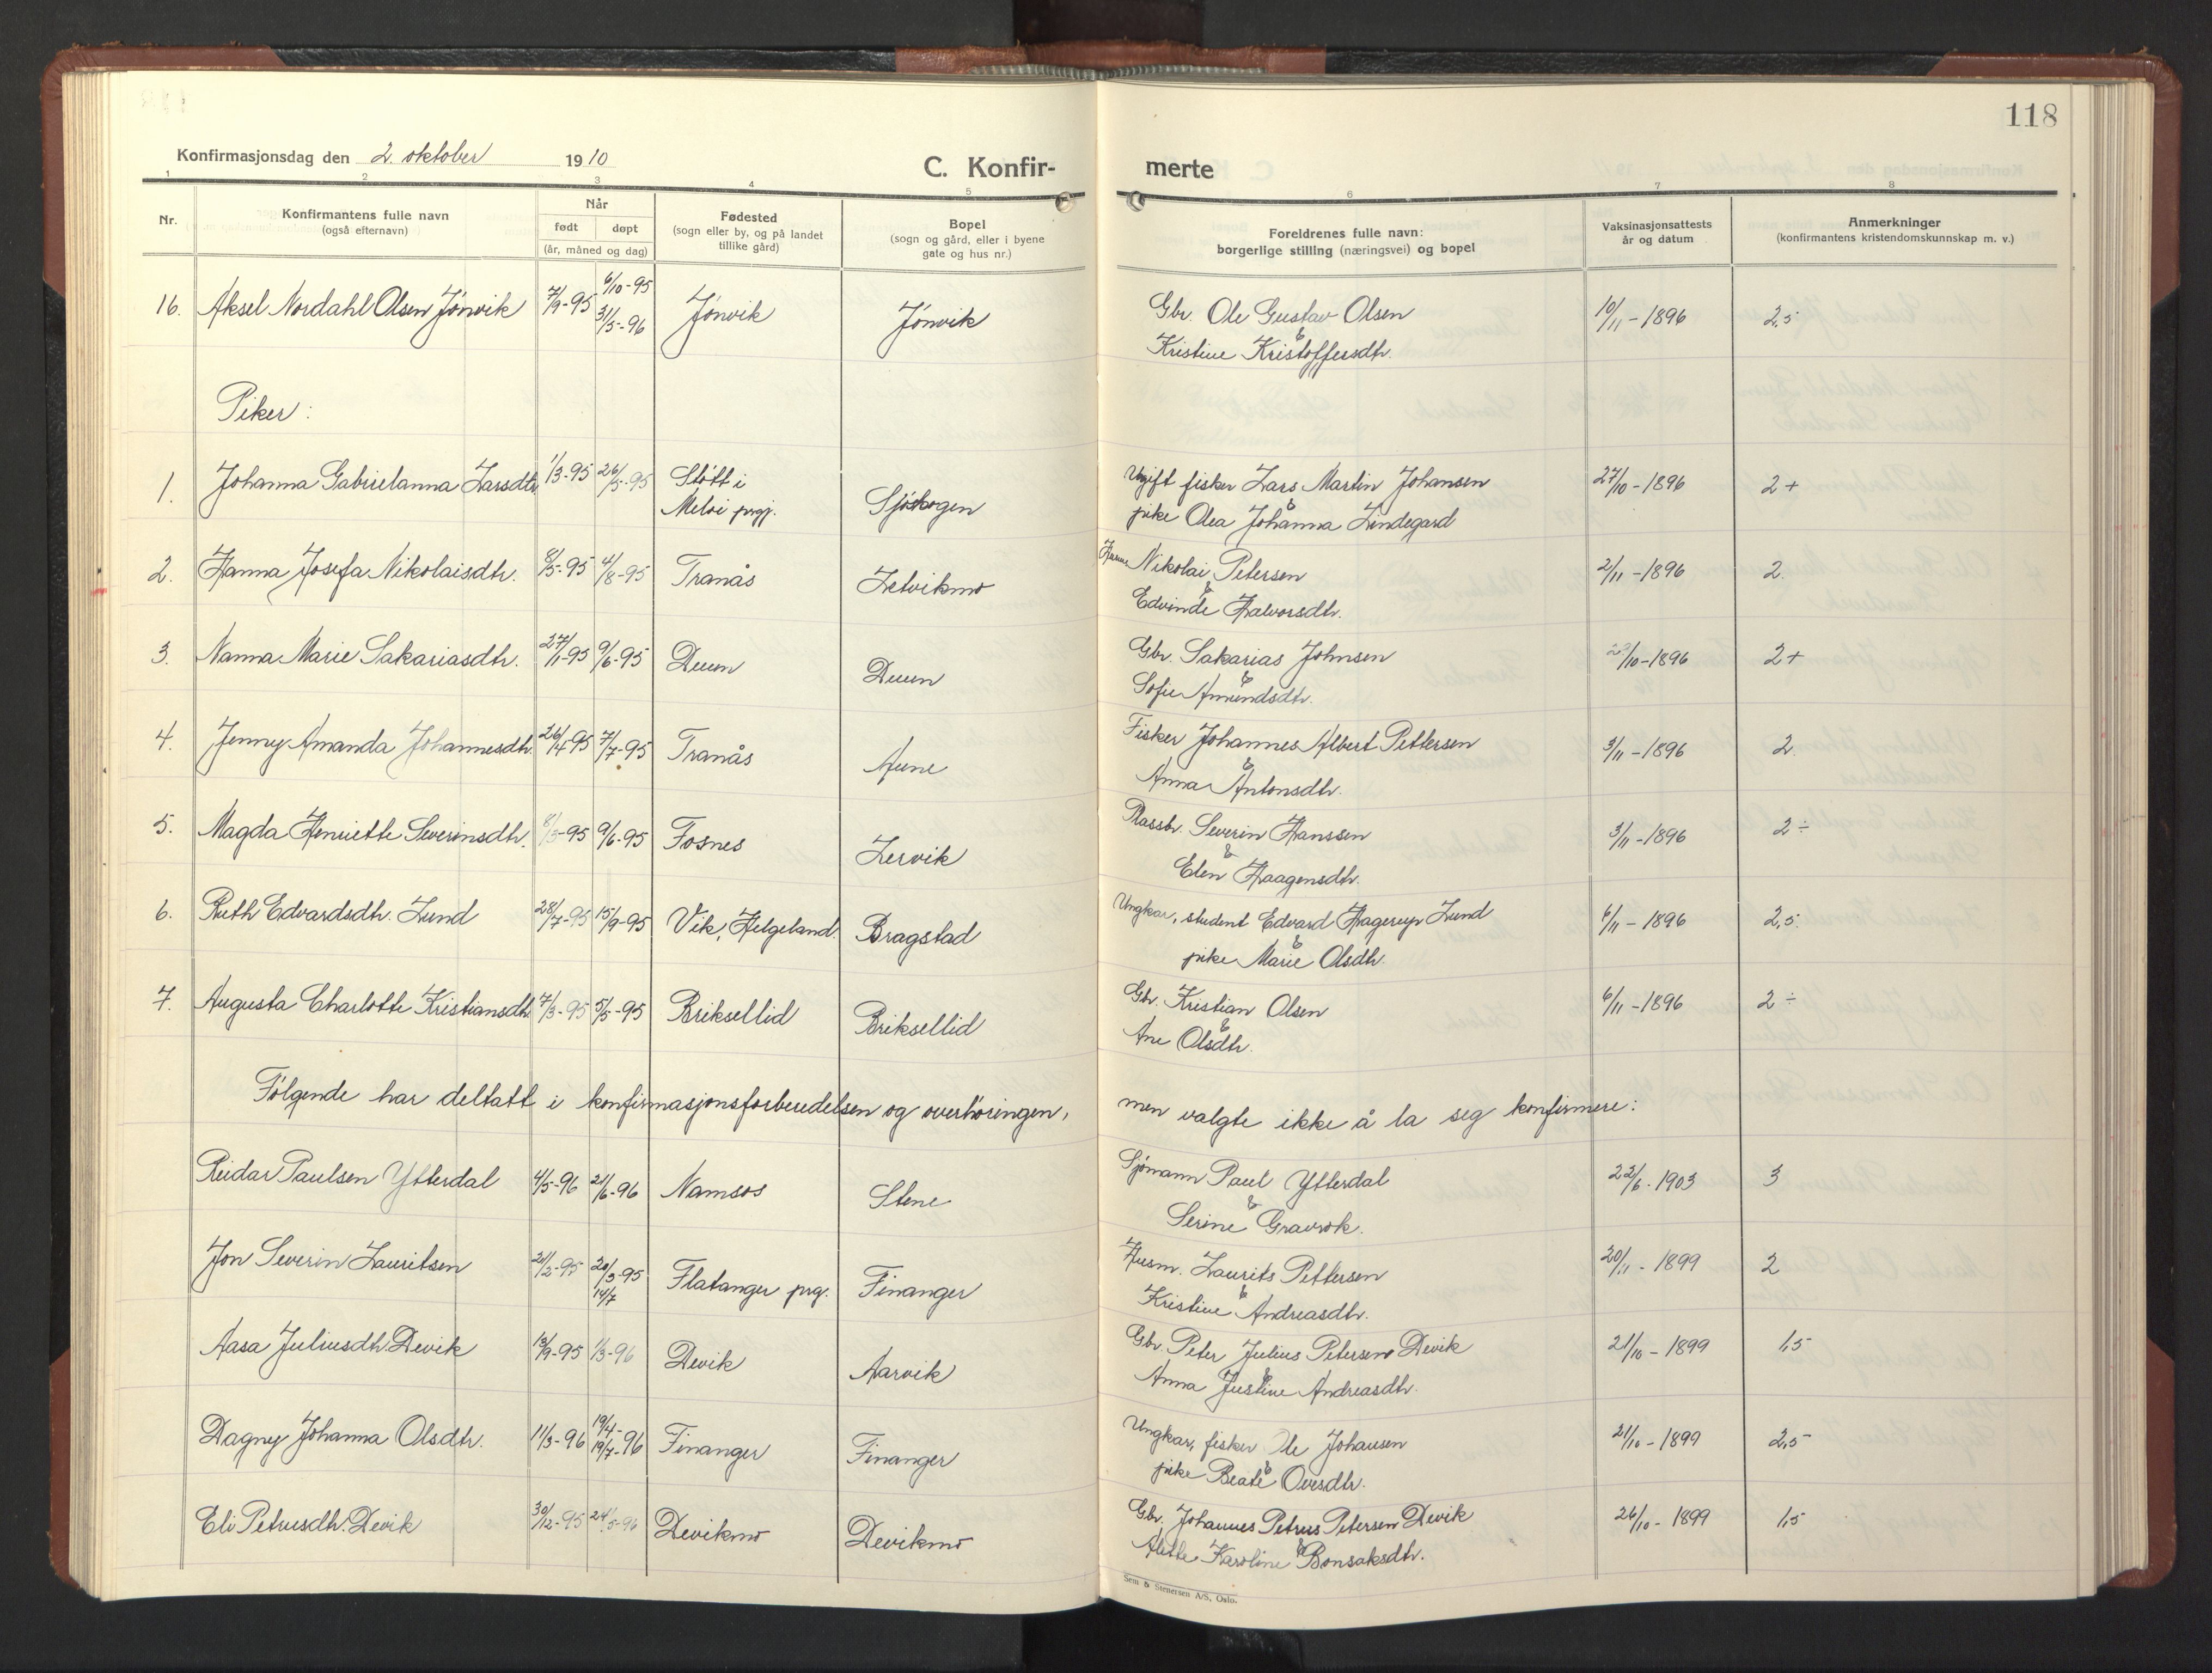 118
Konfirmasjonsdag den 2. oktober 1910
C. Konfir- merte
1 2 3 4 5 6 7 8
Nr.
Konfirmantens fulle navn
(også efternavn)
Når
født døpt
(år, måned og dag)
Fødested
(sogn eller by, og på landet
tillike gård)
Bopel
(sogn og gård, eller i byene
gate og hus nr.)
Foreldrenes fulle navn:
borgerlige stilling (næringsvei) og bopel
Vaksinasjonsattests
år og datum
Anmerkninger
(konfirmantens kristendomskunnskap m. v.)
6/10-95
16. Aksel Nordahl Olsen Jønvik 7/9-95 31/5-96 Jønvik Jønvik Gbr. Ole Gustav Olsen 10/11-1896 2,5
& Kristine Kristoffersdtr.
Piker:
1. Johanna Gabrielanna Larsdtr. 1/3-95 26/5-95 Støtt i Sjøskogen Ugift fisker Lars Martin Johansen 27/10-1896 2+
Meløi prgj. & pike Olea Johanna Lindegard
2. Hanna Josefa Nikolaisdtr. 8/5-95 4/8-95 Tranås Letvikmo Husm. Nikolai Petersen 2/11-1896 2.
& Edvinde Halvorsdtr.
3. Nanna Marie Sakariasdtr. 27/1-95 9/6-95 Duun Duun Gbr. Sakarias Johnsen /10-1896 2+
& Sofie Amundsdtr.
4. Jenny Amanda Johannesdtr. 26/4-95 7/7-95 Tranås Aune Fisker Johannes Albert Pettersen 3/11-1896 2.
& Anna Antonsdtr.
5. Magda Henriette Severinsdtr. 8/3-95 9/6-95 Fosnes Lervik Plassbr. Severin Hanssen 3/11-1896 2÷
& Elen Haagensdtr.
6. Ruth Edvardsdtr. Lund 28/7-95 15/9-95 Vik, Helgeland. Bragstad Ungkar, student Edvard Hagerup Lund 6/11-1896 2,5.
& pike Marie Olsdtr.
7. Augusta Charlotte Kristiansdtr. 7/3-95 5/5-95 Briksellid Briksellid Gbr. Kristian Olsen 6/11-1896 2÷
& Ane Olsdtr.
Følgende har deltatt i konfirmasjonsforberedelsen og overhøringen, men valgte ikke å la seg konfirmere:
Reidar Paulsen Ytterdal 4/5-96 21/6-96 Namsos Stene Sjømann Paul Ytterdal 22/6-1903 3
& Serine Gravrok.
Jon Severin Lauritsen 21/2-95 20/3-95 Flatanger prg. Finanger Husm. Laurits Pettersen 20/11-1899 2
14/7 & Kristine Andreasdtr.
Aasa Juliusdtr. Devik 13/9-95 1/3-96 Devik Aarvik Gbr. Peter Julius Petersen Devik 21/10-1899 1,5
& Anna Justine Andreasdtr.
Dagny Johanna Olsdtr. 11/3-96 19/4- 19/7-96 Finanger Finanger Ungkar, fisker Ole Johansen 21/10-1899 2,5
& pike Beate Ovesdtr.
Eli Petrusdtr. Devik 30/12-95 24/5-96 Devikmo Devikmo Gbr. Johannes Petrus Petersen Devik 26/10-1899 1,5
& Alette Karoline Bonsaksdtr.
Sem & Stenersen A/S, Oslo.